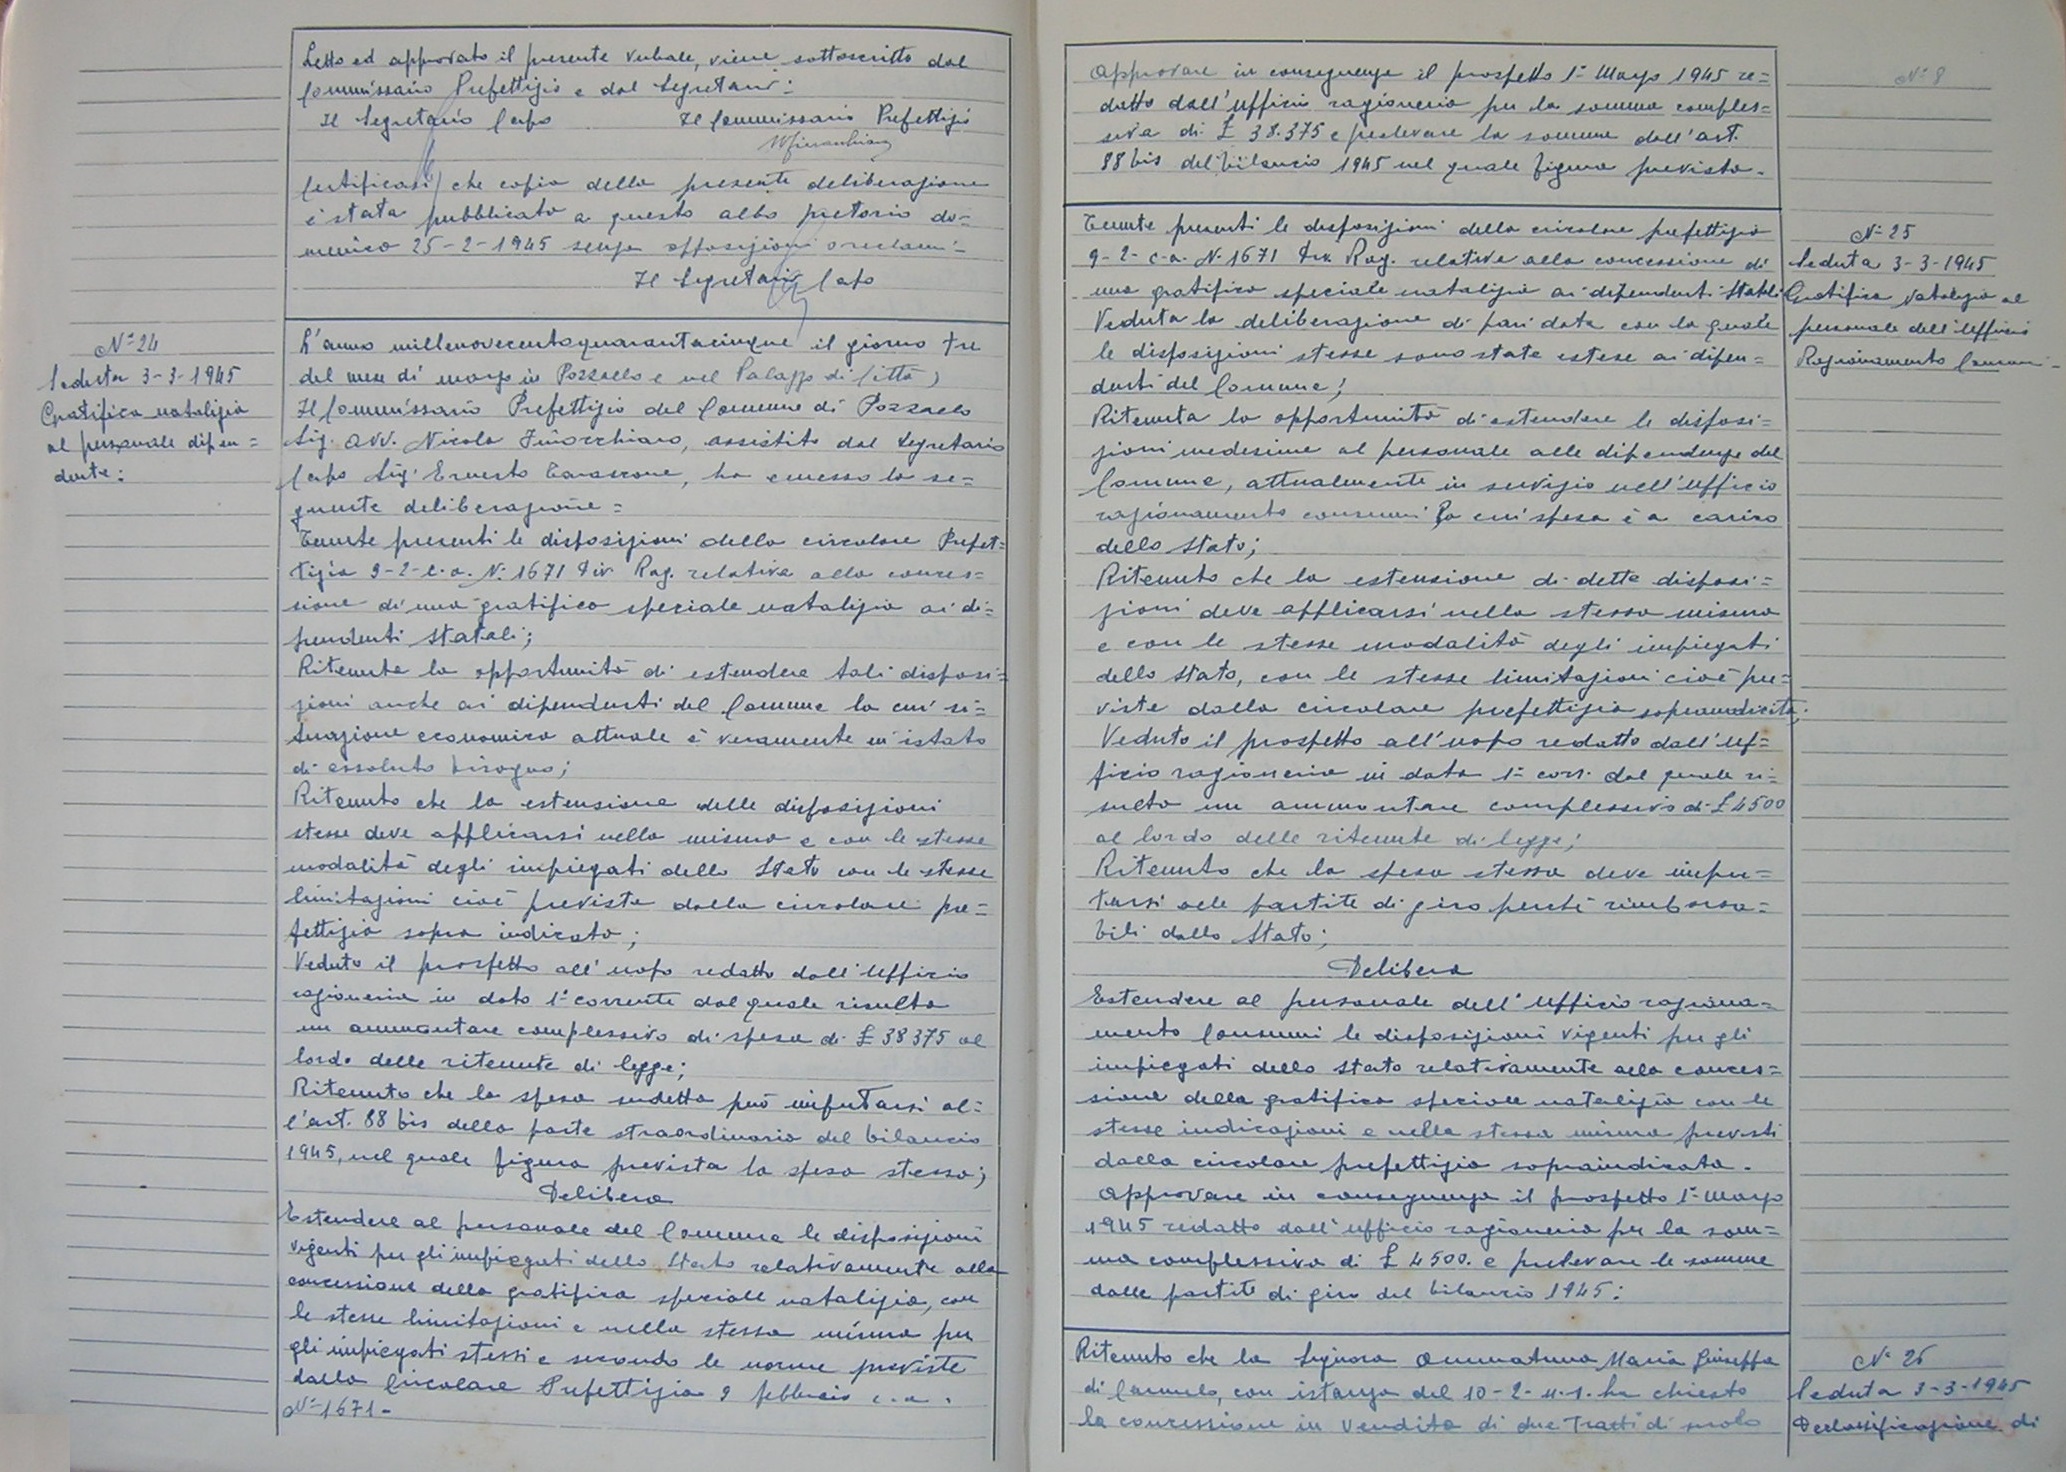 Letto ed approvato il presente verbale, viene sottoscritto dal
Commissario Prefettizio e dal Segretario:
Il Segretario Capo Il Commissario Prefettizio
Certificasi che copia della presente deliberazione
è stata pubblicata a questo albo pretorio do=
menica 25-2-1945 senza opposizioni o reclami-
Il Segretario Capo
N° 24
Seduta 3-3-1945
Gratifica natalizia
al personale dipen=
dente:
L'anno millenovecentoquarantacinque il giorno tre
del mese di marzo in Pozzallo e nel Palazzo di Città,
Il Commissario Prefettizio del Comune di Pozzallo
Sig. Avv. Nicola Finocchiaro, assistito dal Segretario
Capo Sig. Ernesto Tarascone, ha emesso la se=
guente deliberazione=
Tenute presenti le disposizioni della circolare Prefet=
tizia 9-2-c.a. N. 1671 Div. Rag. relative alla conces=
sione di una gratifica speciale natalizia ai di=
pendenti statali;
Ritenuta la opportunità di estendere tali disposi=
zioni anche ai dipendenti del Comune la cui si=
tuazione economica attuale è veramente in istato
di assoluto bisogno;
Ritenuto che la estensione delle disposizioni
stesse deve applicarsi nella misura e con le stesse
modalità degli impiegati dello Stato con le stesse
limitazioni cioè previste dalla circolare pre=
fettizia sopra indicata;
Veduto il prospetto all'uopo redatto dall'Ufficio
ragioneria in data 1° corrente dal quale risulta
un ammontare complessivo di spesa di £ 38375 al
lordo delle ritenute di legge;
Ritenuto che la spesa sudetta può imputarsi al=
l'art. 88 bis della parte straordinaria del bilancio
1945, nel quale figura prevista la spesa stessa;
Delibera
Estendere al personale del Comune le disposizioni
vigenti per gli impiegati dello Stato relativamente alla
concessione della gratifica speciale natalizia, con
le stesse limitazioni e nella stessa misura per
gli impiegati stessi e secondo le norme previste
dalla Circolare Prefettizia 9 febbraio c.a.
N° 1671-
N° 8
Approvare in conseguenza il prospetto 1° Marzo 1945 re=
datto dall'ufficio ragioneria per la somma comples=
siva di £ 38.375 e prelevare la somma dall'art.
88 bis del bilancio 1945 nel quale figura prevista.
N° 25
Seduta 3-3-1945
Gratifica natalizia al
personale dell'Ufficio
Razionamento Consumi-
Tenute presenti le disposizioni della circolare prefettizia
9-2-c.a. N. 1671 Div. Rag. relative alla concessione di
una gratifica speciale natalizia ai dipendenti Statali
Veduta la deliberazione di pari data con la quale
le disposizioni stesse sono state estese ai dipen=
denti del Comune;
Ritenuta la opportunità di estendere le disposi=
zioni medesime al personale alle dipendenze del
Comune, attualmente in servizio nell'ufficio
razionamento consumi la cui spesa è a carico
dello Stato;
Ritenuto che la estensione di dette disposi=
zioni deve applicarsi nella stessa misura
e con le stesse modalità degli impiegati
dello Stato, con le stesse limitazioni cioè pre=
viste dalla circolare prefettizia sopraindicata;
Veduto il prospetto all'uopo redatto dall'uf=
ficio ragioneria in data 1° corr. dal quale ri=
sulta un ammontare complessivo di £ 4500
al lordo delle ritenute di legge;
Ritenuto che la spesa stessa deve impu=
tarsi alle partite di giro perchè rimborsa=
bili dallo Stato;
Delibera
Estendere al personale dell'ufficio raziona=
mento Consumi le disposizioni vigenti per gli
impiegati dello Stato relativamente alla conces=
sione della gratifica speciale natalizia con le
stesse indicazioni e nella stessa misura previsti
dalla circolare prefettizia sopraindicata.
Approvare in conseguenza il prospetto 1° Marzo
1945 redatto dall'ufficio ragioneria per la som=
ma complessiva di £ 4500. e prelevare le somme
dalle partite di giro del bilancio 1945:
N° 26
Seduta 3-3-1945
Declassificazione di
Ritenuto che la Signora Ammatuna Maria Giuseppa
di Carmelo, con istanza del 10-2-u.s. ha chiesto
la concessione in vendita di due tratti di suolo